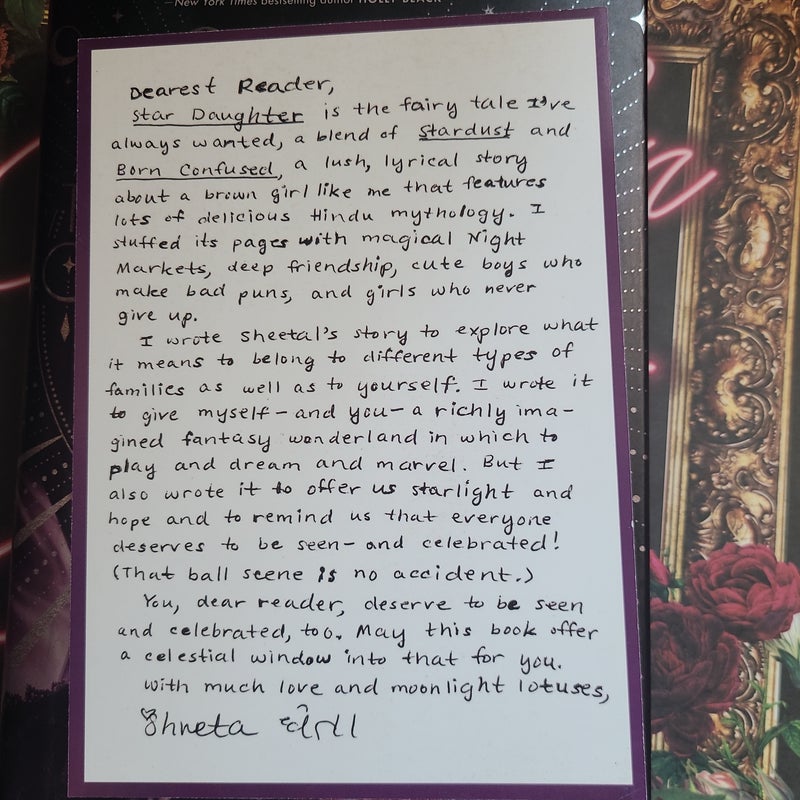 —New York Times bestselling author HOLLY BLACK
Dearest Reader,
Star Daughter is the fairy tale I've
always wanted, a blend of Stardust and
Born Confused, a lush, lyrical story
about a brown girl like me that features
lots of delicious Hindu mythology. I
stuffed its pages with magical Night
Markets, deep friendship, cute boys who
make bad puns, and girls who never
give up.
I wrote Sheetal's story to explore what
it means to belong to different types of
families as well as to yourself. I wrote it
to give myself—and you—a richly ima-
gined fantasy wonderland in which to
play and dream and marvel. But I
also wrote it to offer us starlight and
hope and to remind us that everyone
deserves to be seen—and celebrated!
(That ball scene is no accident.)
You, dear reader, deserve to be seen
and celebrated, too. May this book offer
a celestial window into that for you.
With much love and moonlight lotuses,